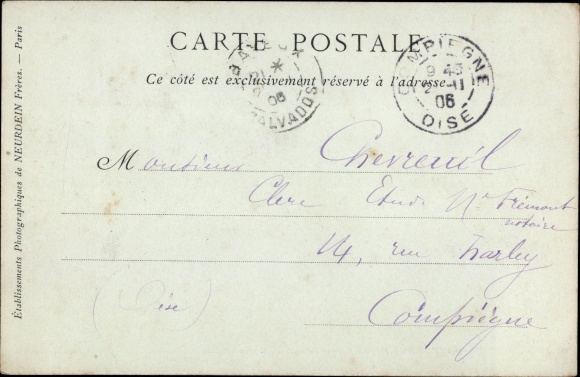 CARTE POSTALE
Ce côté est exclusivement réservé à l'adresse
BAYEUX
06
CALVADOS
COMPIEGNE
9 45
2 - 11
06
OISE
Monsieur Chevreuil
Clerc Etude Me Frémont
notaire
14, rue Harley
(Oise)
Compiègne
Établissements Photographiques de NEURDEIN Frères. — Paris